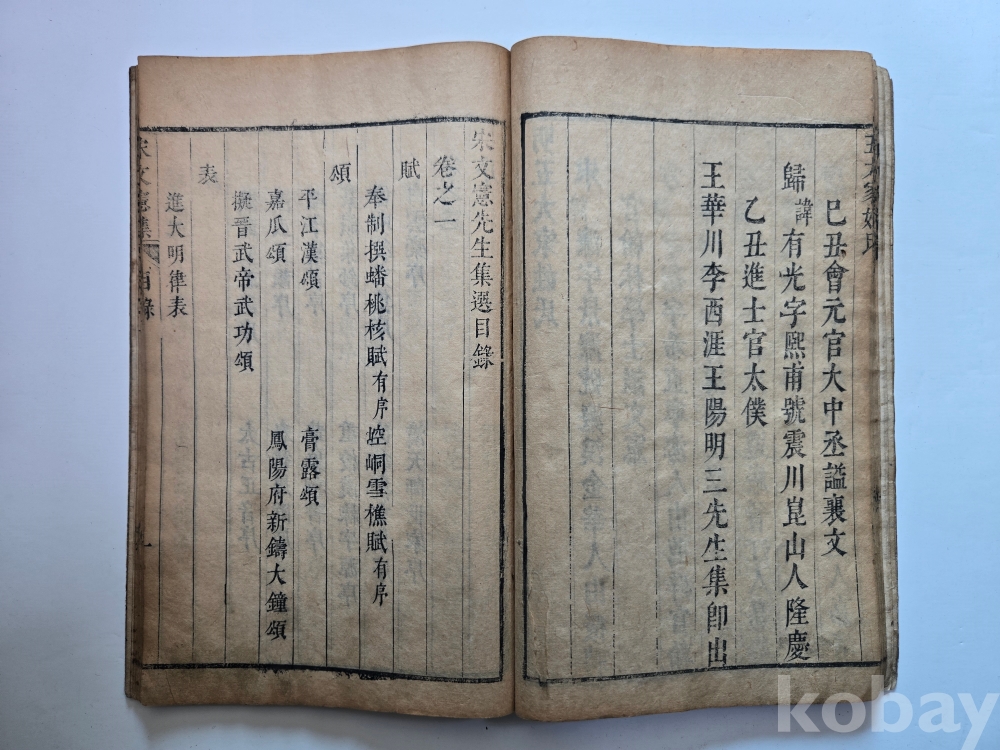 五大家姓氏
己丑會元官大中丞謚襄文
歸諱有光字熙甫號震川崑山人隆慶
乙丑進士官太僕
王華川李西涯王陽明三先生集卽出
宋文憲先生集選目錄
卷之一
賦
奉制撰蟠桃核賦有序 崆峒雪樵賦有序
頌
平江漢頌 膏露頌
嘉瓜頌 鳳陽府新鑄大鐘頌
擬晉武帝武功頌
表
進大明律表
宋文憲集 目錄 一
kobay